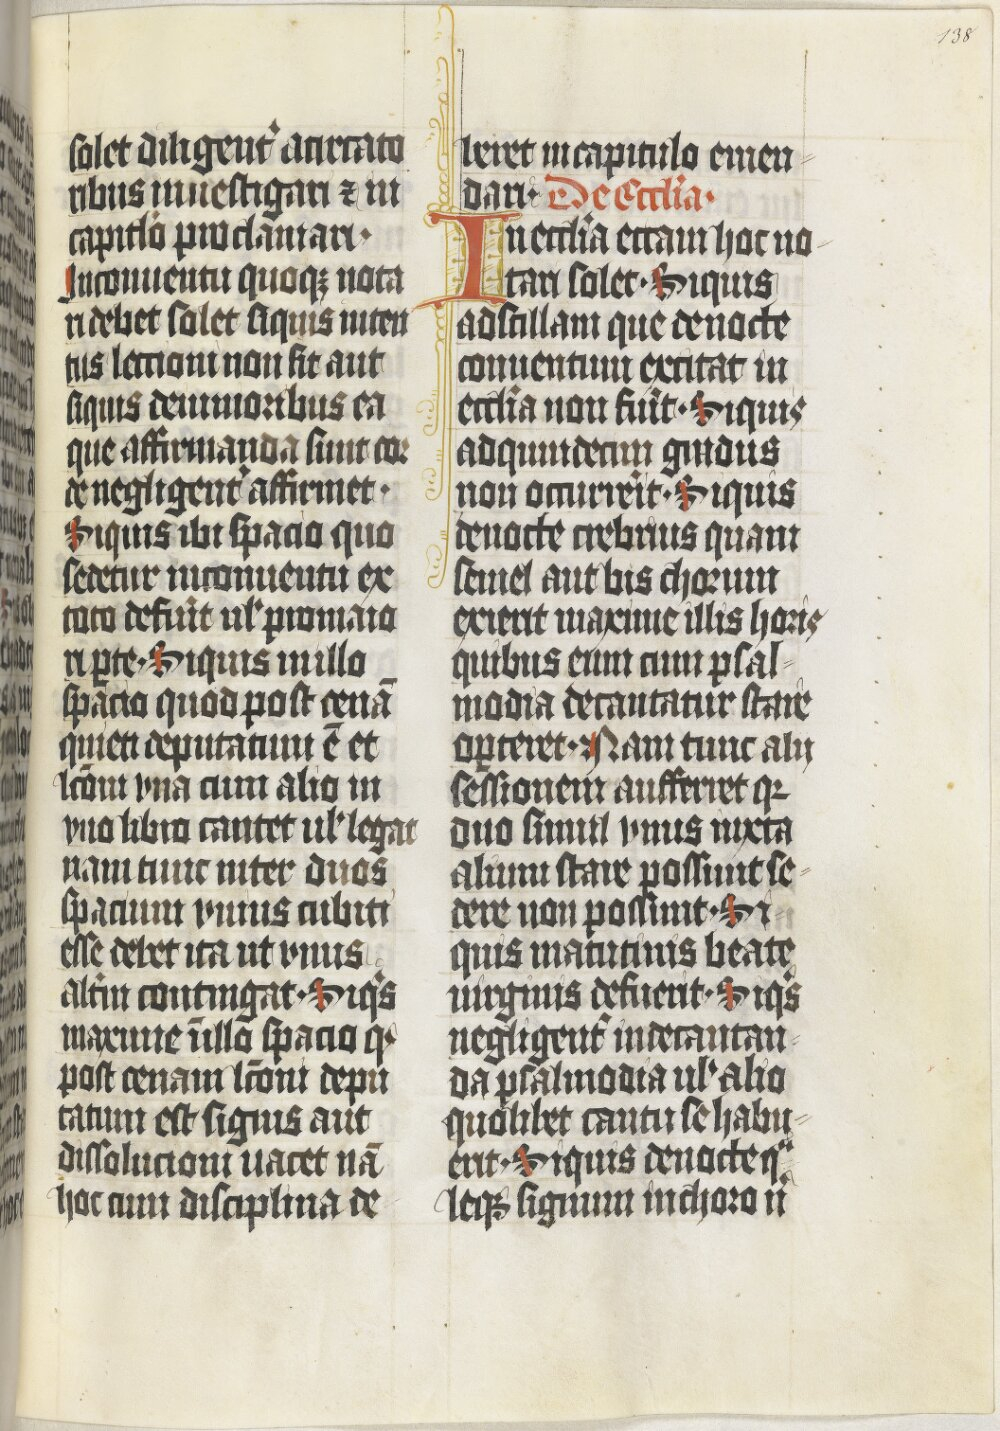 138
solet diligent᷒ acircato
ribus inuestigari ⁊ in
capitl̄o proclamari·
Inconuentu quoqꝫ nota
ri debet solet siquis inten
tus lectioni non sit aut
siquis deminoribus ea
que affirmanda sunt cor
de negligent᷒ affirmet·
Siquis ibi spacio quo
sedetur inconuentu ex
toto defuīt ul᷒ promaio
ri ꝑte· Siquis in illo
spacio quod post cenā
quieti deputatum ē et
lc̄oni vna cum alio in
vno libro cantet ul᷒ legat
nam tunc inter duos
spacium vnius cubiti
esse debet ita ut vnus
alt̄m contingat· Siq̄s
maxime ī illo spacio q᷒
post cenam lc̄oni depu
tatum est signis aut
dissolucioni uacet nā
hoc cum disciplina de
beret in capitulo emen-
dari· De Eccl̄ia·
In eccl̄ia eciam hoc no-
tari solet· Siquis
ad scillam que de nocte
conuentum excitat in
eccl̄ia non fuīt· Siquis
ad quindecim gradus
non occurreīt· Siquis
de nocte crebrius quam
semel aut bis chorum
exierit maxime illis horis
quibus eum cum psal-
modia decantatur stare
oꝑteret· Nam tunc alij
sessionem aufferret qꝛ
duo simul vnus iuxta
alium stare possunt se-
dere non possunt· Si-
quis matutinis beate
virginis defuerit· Siq̄s
negligent᷒ in decantan-
da psalmodia ul᷒ alio
quolibet cantu se habu-
erit· Siquis de nocte q᷒
leqꝫ signum in choro ñ